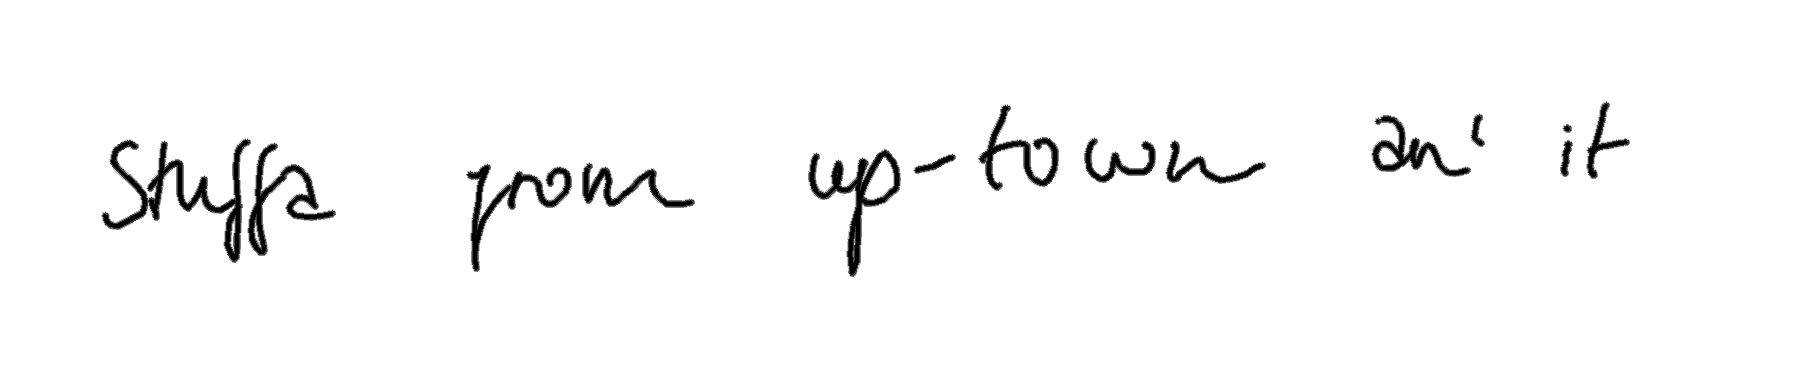 Stuffa from up-town an' it